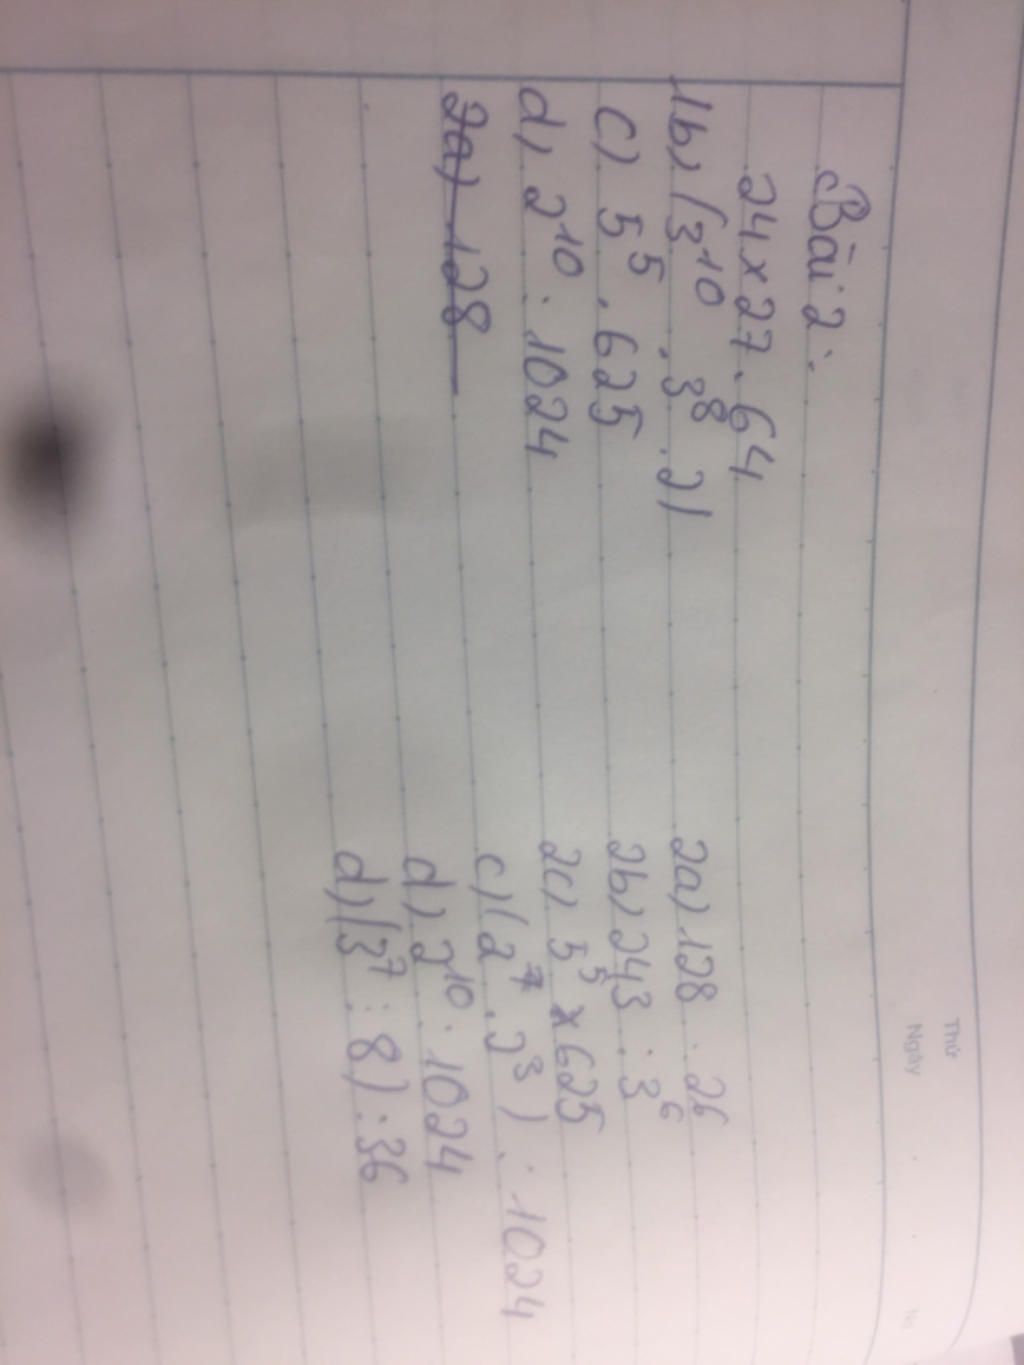 Thứ
Ngày
No
Bài 2:
24 x 27 . 64
1b) (3¹⁰ . 3⁸ . 21
c) 5⁵ . 625
d) 2¹⁰ : 1024
2a) 128
2a) 128 : 26
2b) 243 : 3⁶
2c) 5⁵ x 625
c) (2⁷ . 2³) : 1024
d) 2¹⁰ : 1024
d) (3⁷ : 8) : 36